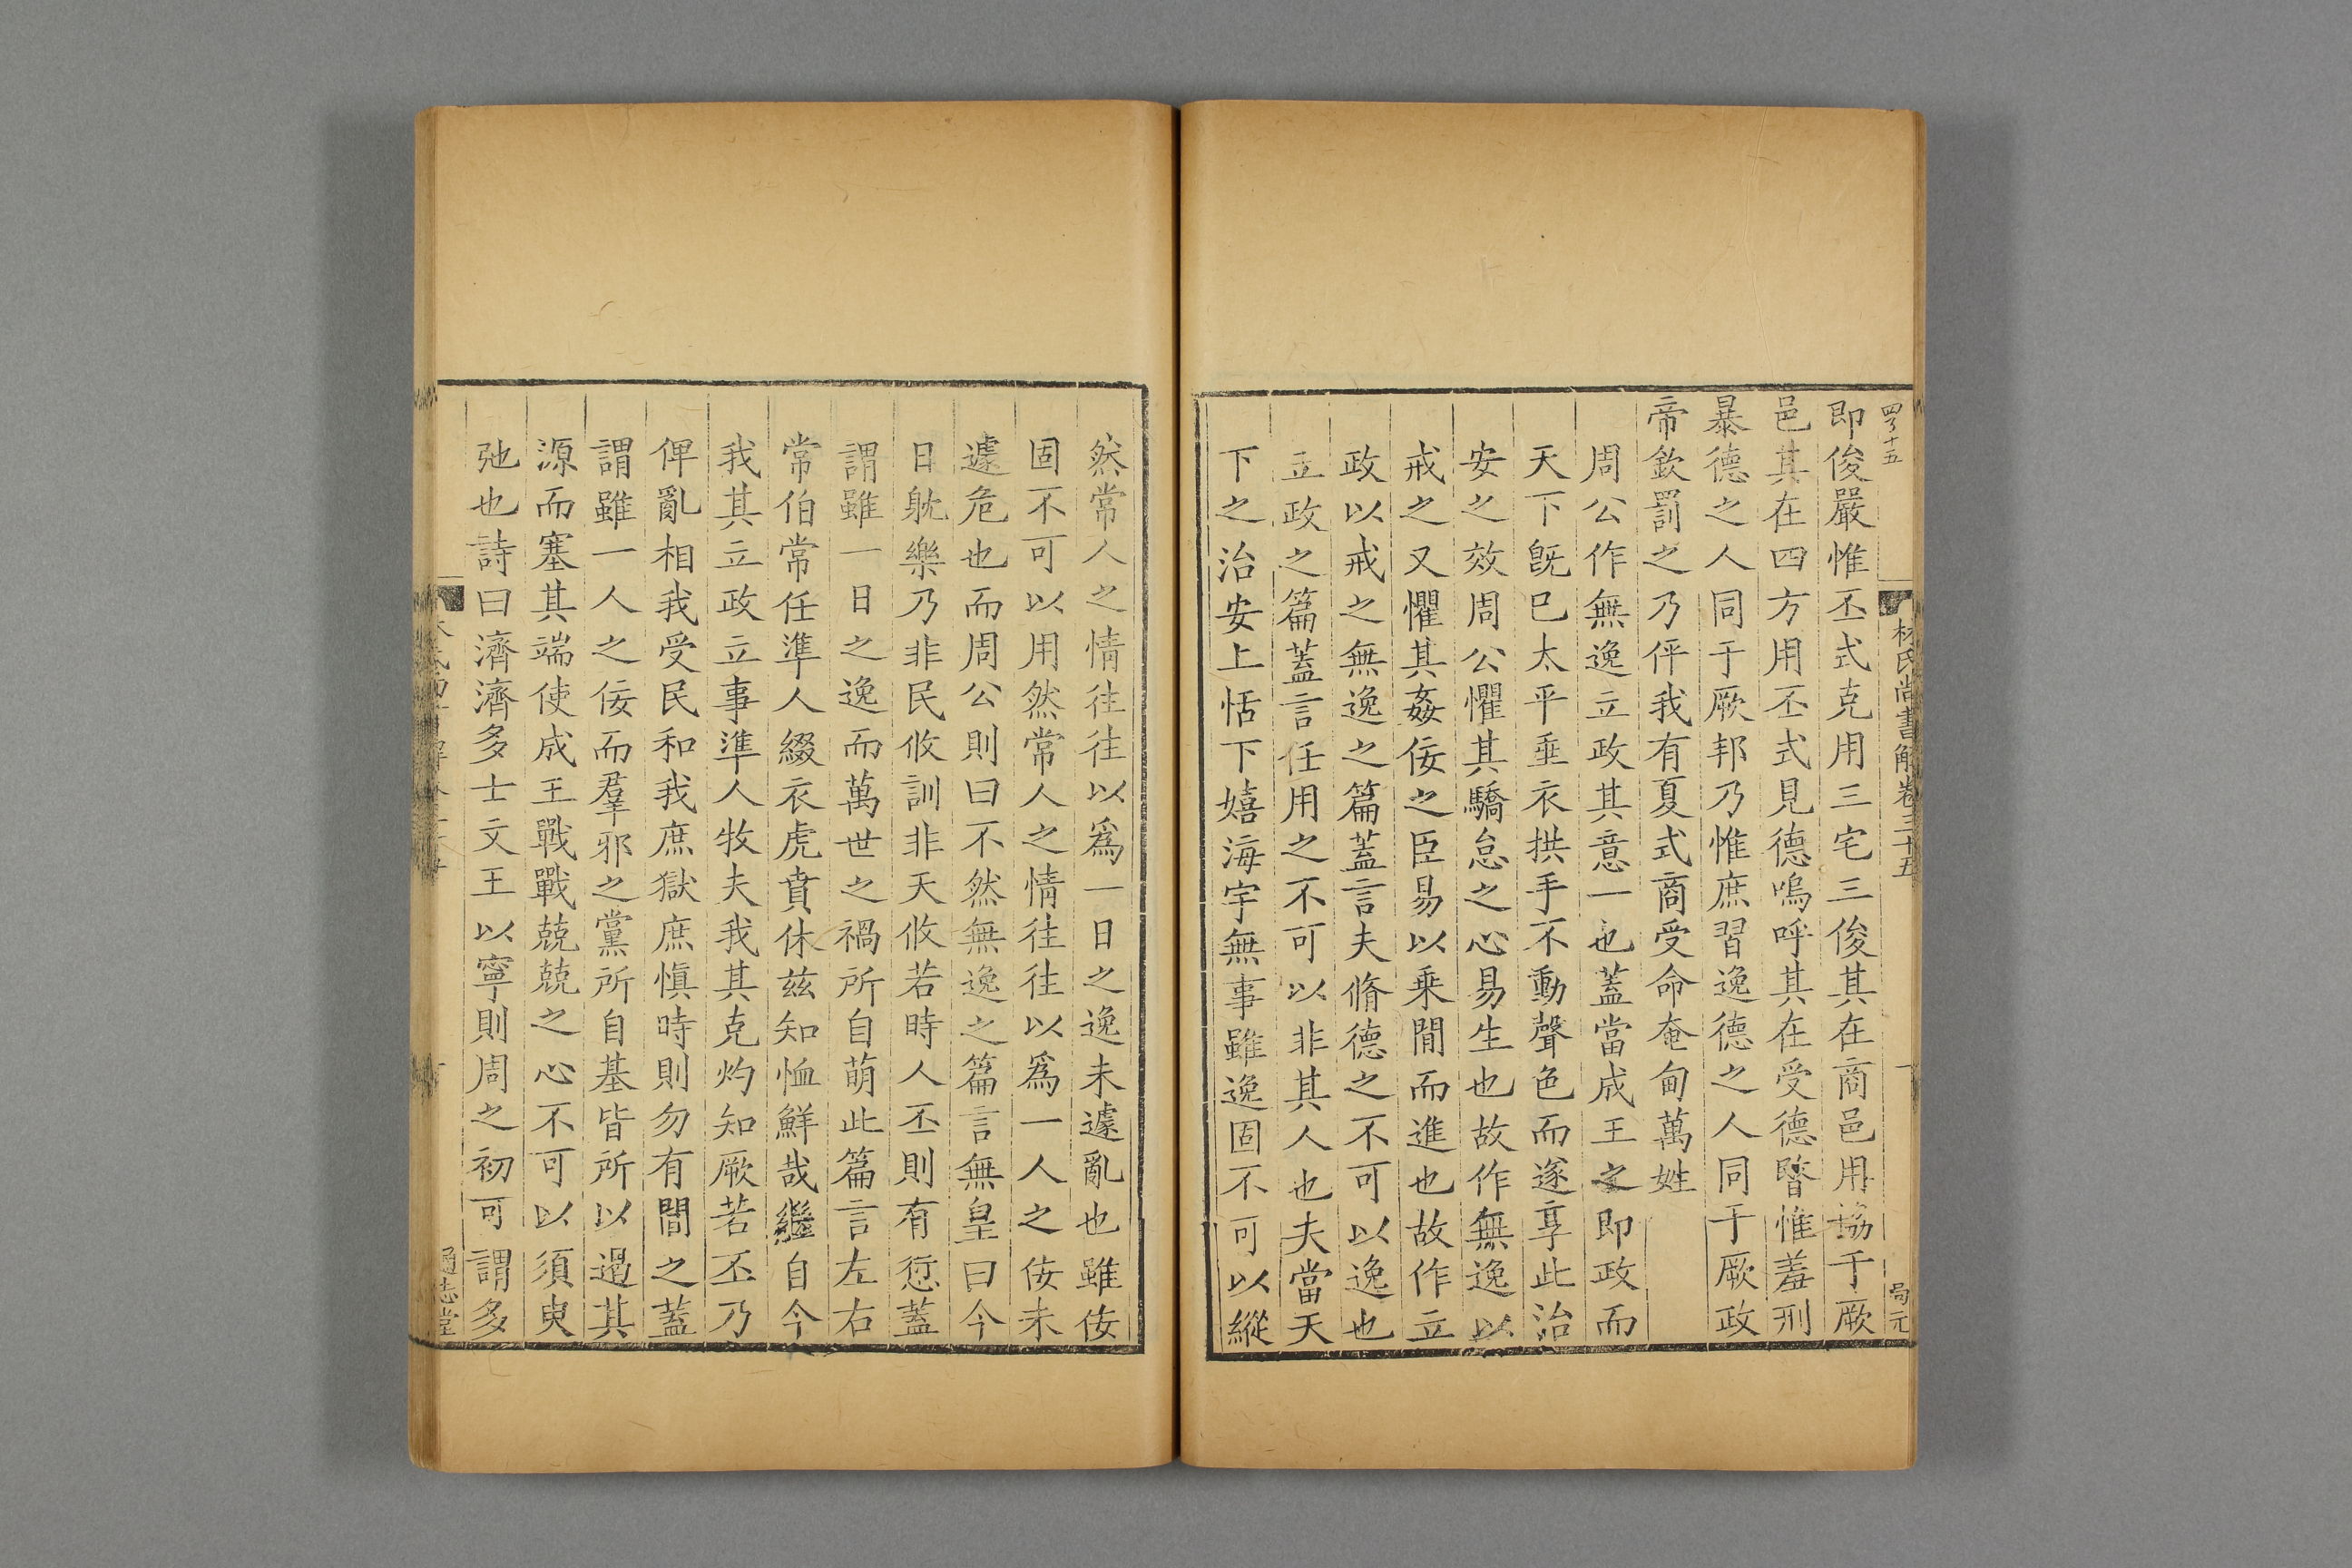 林氏尚書解卷三十五
即俊嚴惟丕式克用三宅三俊其在商邑用協于厥
邑其在四方用丕式見德嗚呼其在受德暋惟羞刑
暴德之人同于厥邦乃惟庶習逸德之人同于厥政
帝欽罰之乃伻我有夏式商受命奄甸萬姓
周公作無逸立政其意一也蓋當成王之即政而
天下旣已太平垂衣拱手不動聲色而遂享此治
安之效周公懼其驕怠之心易生也故作無逸以
戒之又懼其姦佞之臣易以乘間而進也故作立
政以戒之無逸之篇蓋言夫脩德之不可以逸也
立政之篇蓋言任用之不可以非其人也夫當天
下之治安上恬下嬉海宇無事雖逸固不可以縱
然常人之情往往以爲一日之逸未遽亂也雖佞
固不可以用然常人之情往往以爲一人之佞未
遽危也而周公則曰不然無逸之篇言無皇曰今
日躭樂乃非民攸訓非天攸若時人丕則有愆蓋
謂雖一日之逸而萬世之禍所自萌此篇言左右
常伯常任準人綴衣虎賁休茲知恤鮮哉繼自今
我其立政立事準人牧夫我其克灼知厥若丕乃
俾亂相我受民和我庶獄庶愼時則勿有間之蓋
謂雖一人之佞而羣邪之黨所自基皆所以遏其
源而塞其端使成王戰戰兢兢之心不可以須臾
弛也詩曰濟濟多士文王以寧則周之初可謂多
通志堂